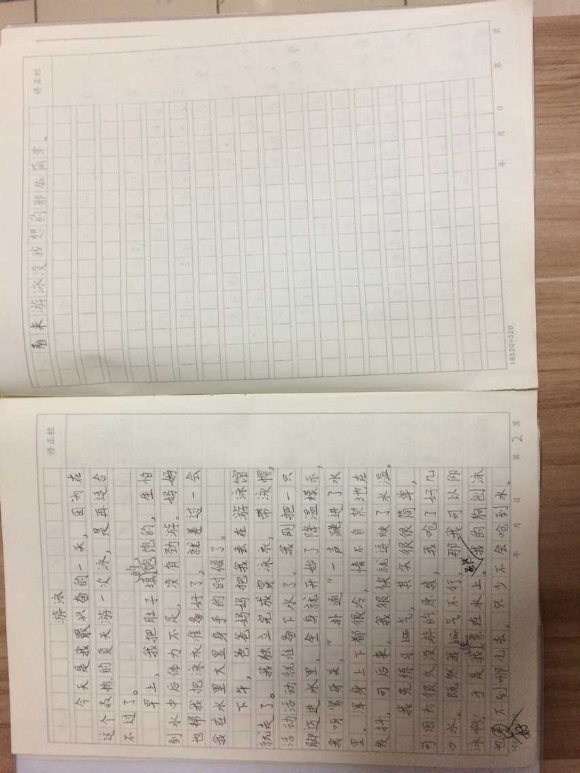 游泳
今天是我最兴奋的一天,因为在
这个炎热的夏天游一次泳,是再适合
不过了。
早上,我把肚子填饱饱的,生怕
到水中后体力不足,没有劲游。妈妈
也帮我把泳衣准备好了,就差过一会
我在水里大显身手的时候了。
下午,爸爸妈妈把我丢在游泳馆
就走了。我独立完成穿泳衣,带泳帽,
活动活动就准备下水了。我刚把一只
脚迈进水里,全身就开始了降温模式,
我听哥哥来,“扑通”一声跳进了水
里,浑身上下都很冷,情不自共地在
发抖,可后来,我很快就适应了水温。
我先练习
气,其实很很简单,
可因为很久没游的原故,我呛了好几
口水,既然我
气不行,那我可以仰
泳啊,于是我
漂在水上,
我的狗刨泳
也
不到哪儿去,只少不会呛到水。
看来游泳没我想的那么简单。
修正栏
修正栏
年 月 日
第 2 页
年 月 日 第 页